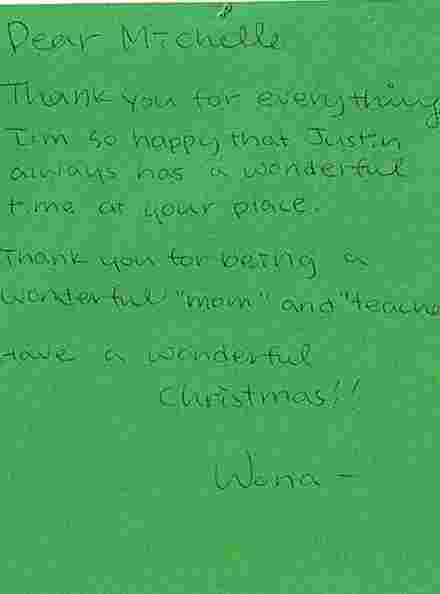 Dear Michelle
Thank you for everything
I'm so happy that Justin
always has a wonderful
time at your place.
Thank you for being a
wonderful "mom" and "teache
Have a wonderful
Christmas!!
Wona -